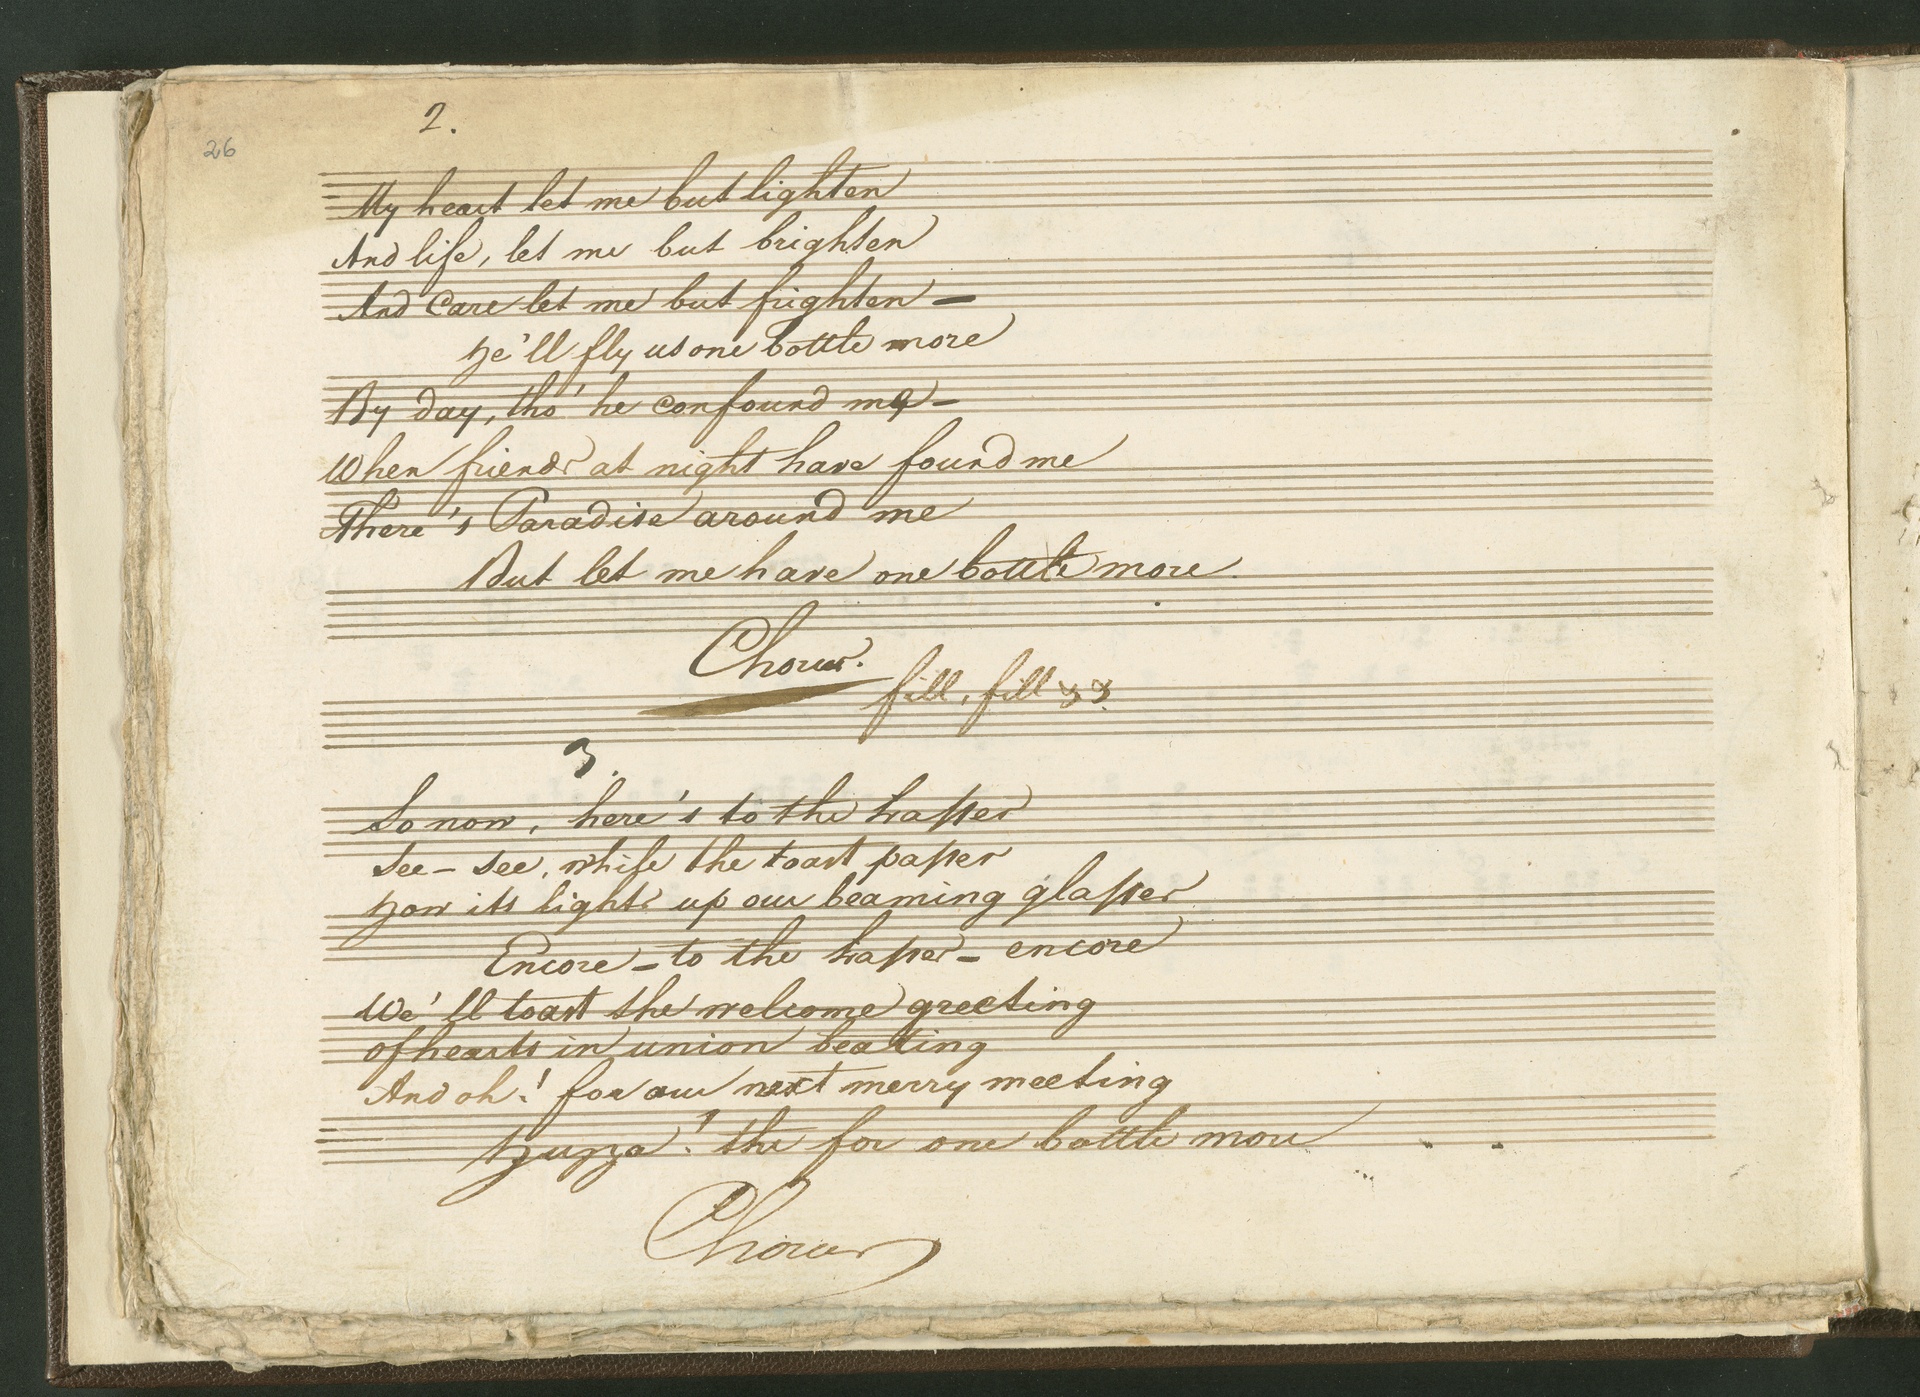 2.
26
My heart let me but lighten
And life, let me but brighten
And Care let me but frighten —
He'll fly us one bottle more
By day, tho' he confound me —
When friends at night have found me
There's Paradise around me
But let me have one bottle more.
Chorus.
fill, fill &&.
3.
So now, here's to the lasses
See – see, while the toast passes
How its lights up our beaming glasses
Encore – to the lasses – encore
We'll toast the welcome greeting
of hearts in union beating
And oh! for our next merry meeting
Huzza! the for one bottle more
Chorus